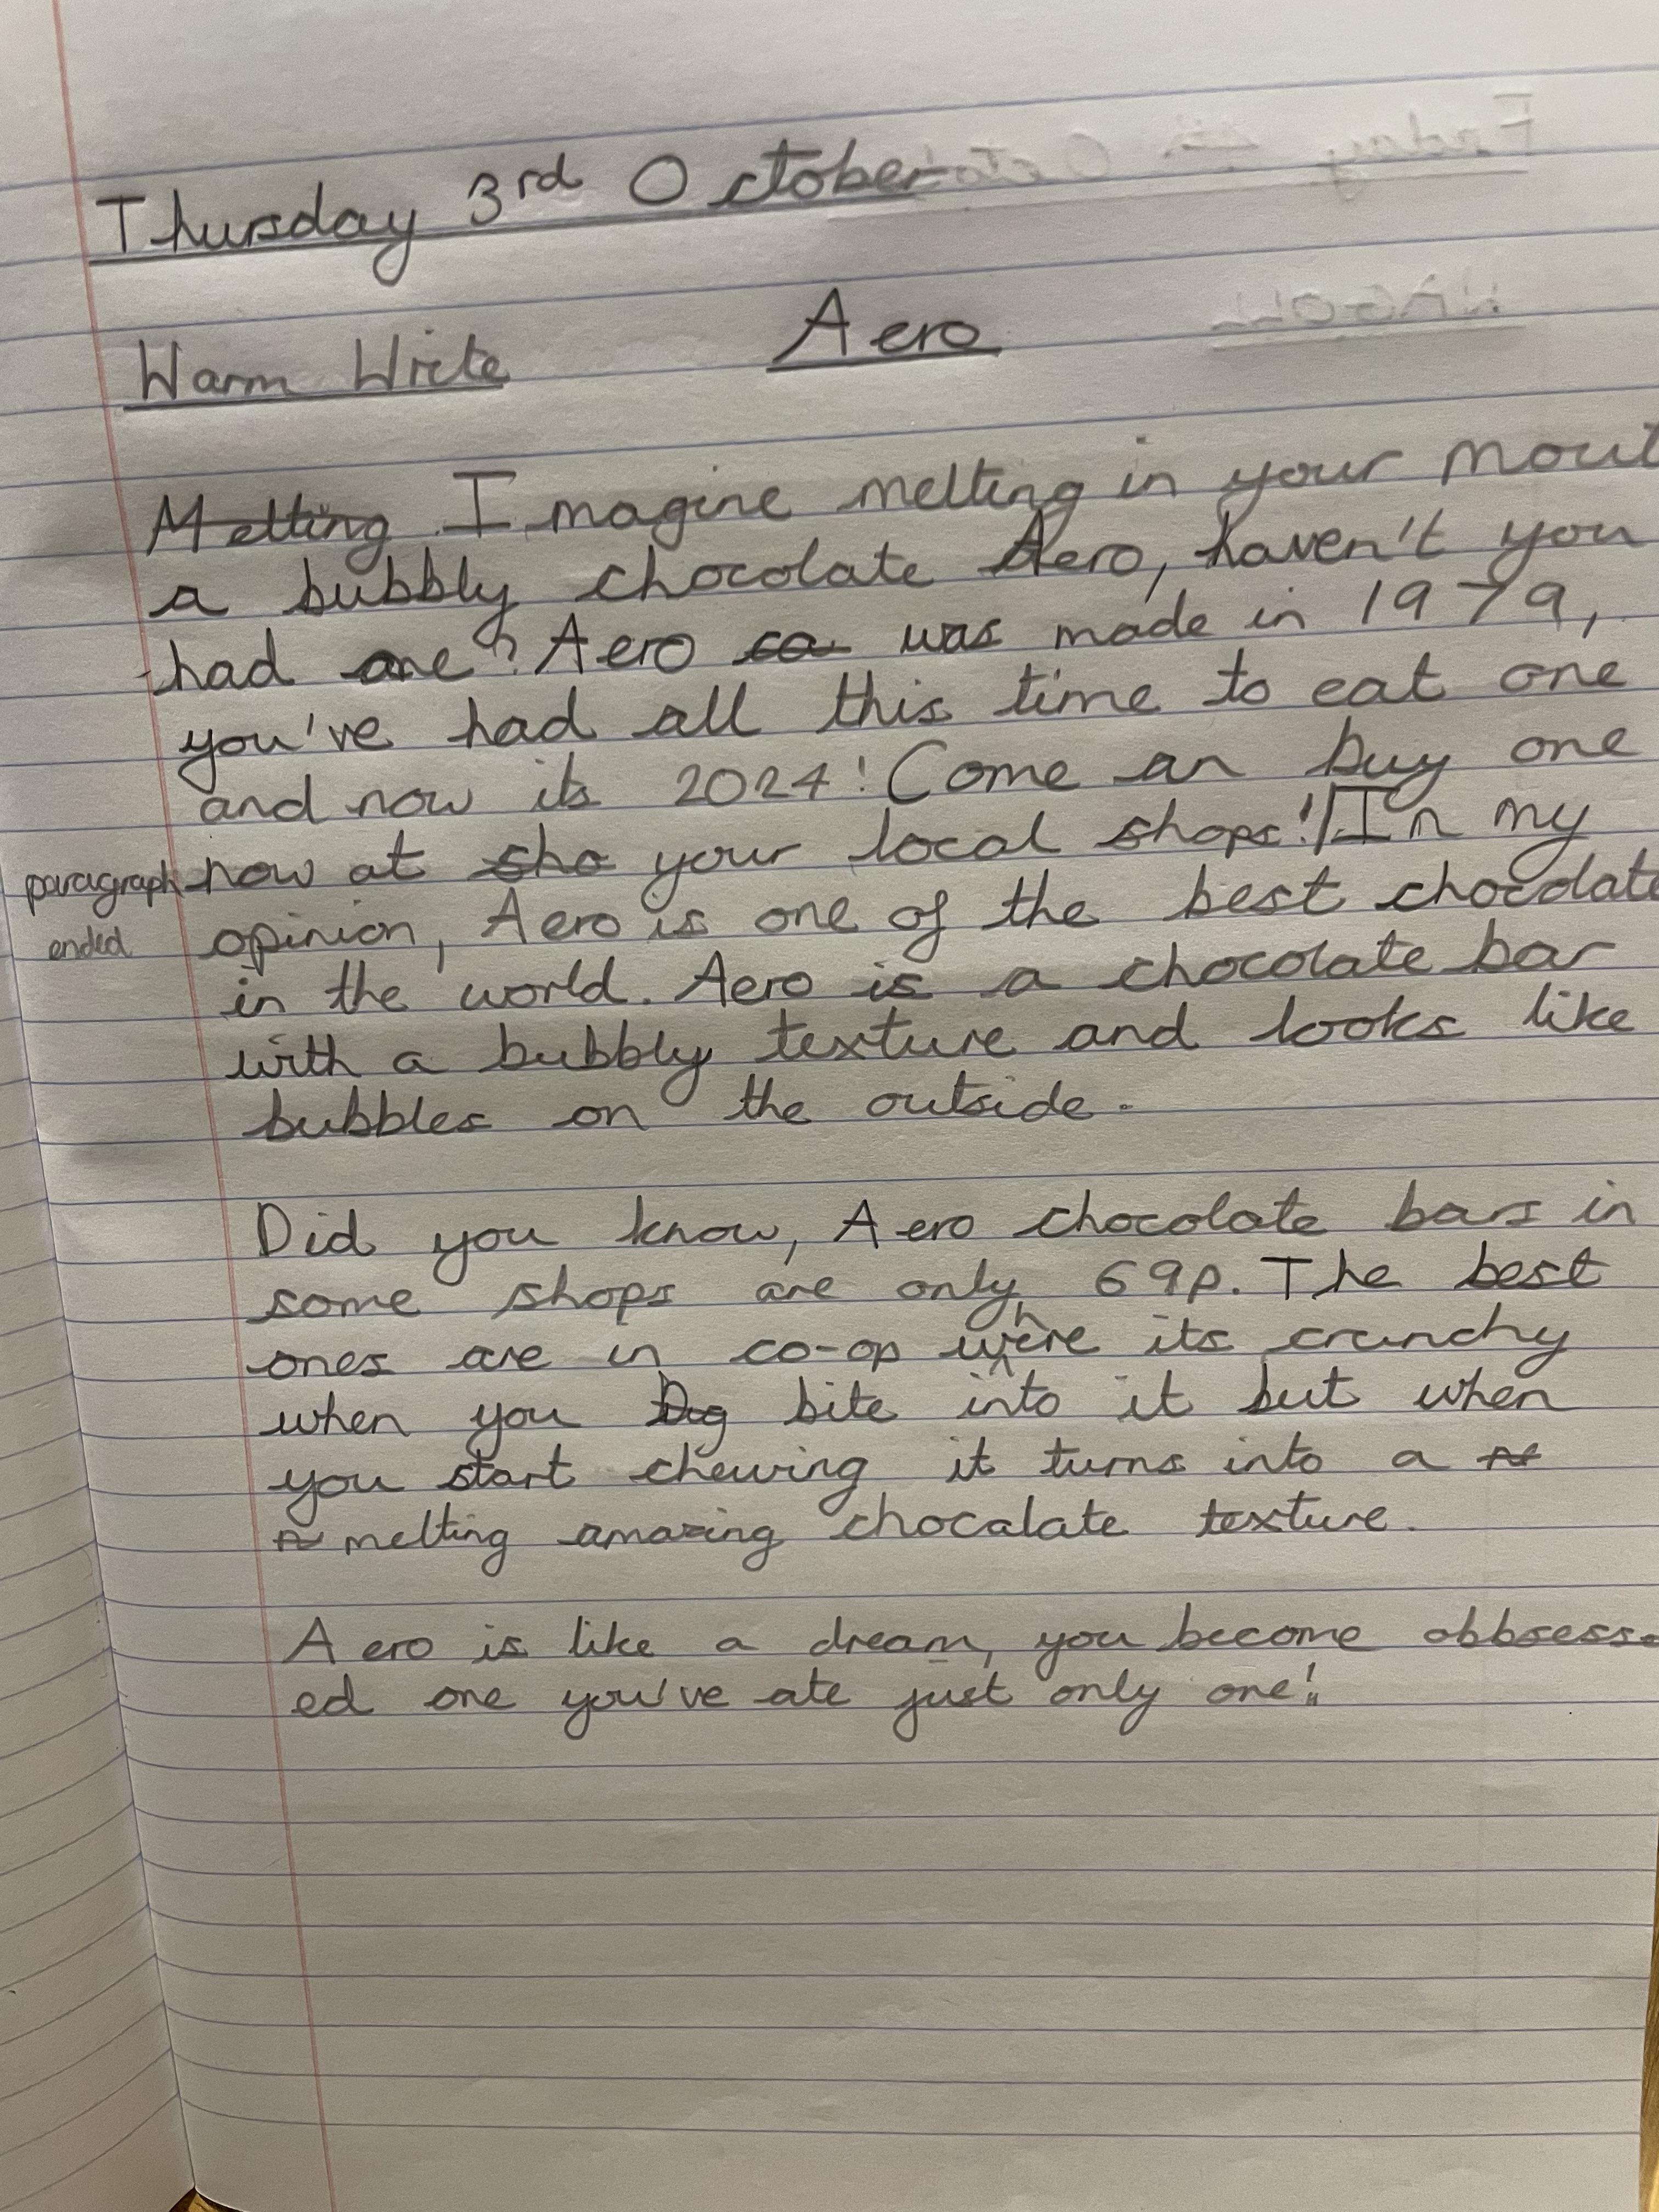 Thursday 3rd October
Warm Write Aero
Melting Imagine melting in your mout
a bubbly chocolate Aero, haven't you
had one? Aero ca was made in 1979,
you've had all this time to eat one
and now its 2024! Come an buy one
now at sho your local shops! // In my
paragraph ended
opinion, Aero is one of the best chocolate
in the world. Aero is a chocolate bar
with a bubbly texture and looks like
bubbles on the outside.
Did you know, Aero chocolate bars in
some shops are only 69p. The best
ones are in co-op where its crunchy
when you bite into it but when
you start chewing it turns into a
melting amazing chocalate texture.
Aero is like a dream, you become obbsess-
ed one you've ate just only one!